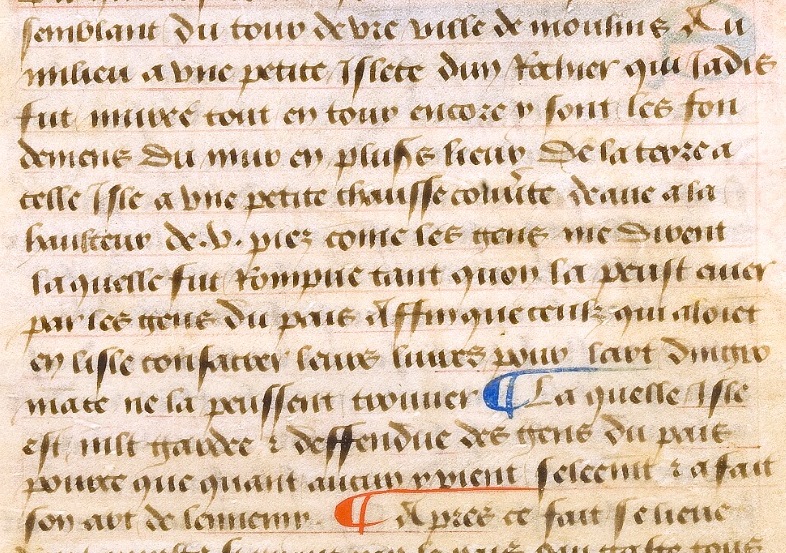 semblant du tour de vre ville de moulins Au
milieu a vne petite Islete dun Rochier qui Jadis
fut mure tout en tour encore y sont les fon
demens du mur en plus's lieux De la terre a
celle Isle a vne petite chausse couu'te deaue a la
haulteur de .v. piez come les gens me dirent
la quelle fut Rompue tant quon la peust auer
par les gens du pais Affin que ceulx qui aloiet
en lisle consacrer leurs liures pour lart dnigro
mace ne la peussent trouuer ¶ La quelle Isle
est mlt gardee ⁊ deffendue des gens du pais
pource que quant aucun y vient ⁊ a fait
son art de lennemy ¶ Apres ce fait se lieue